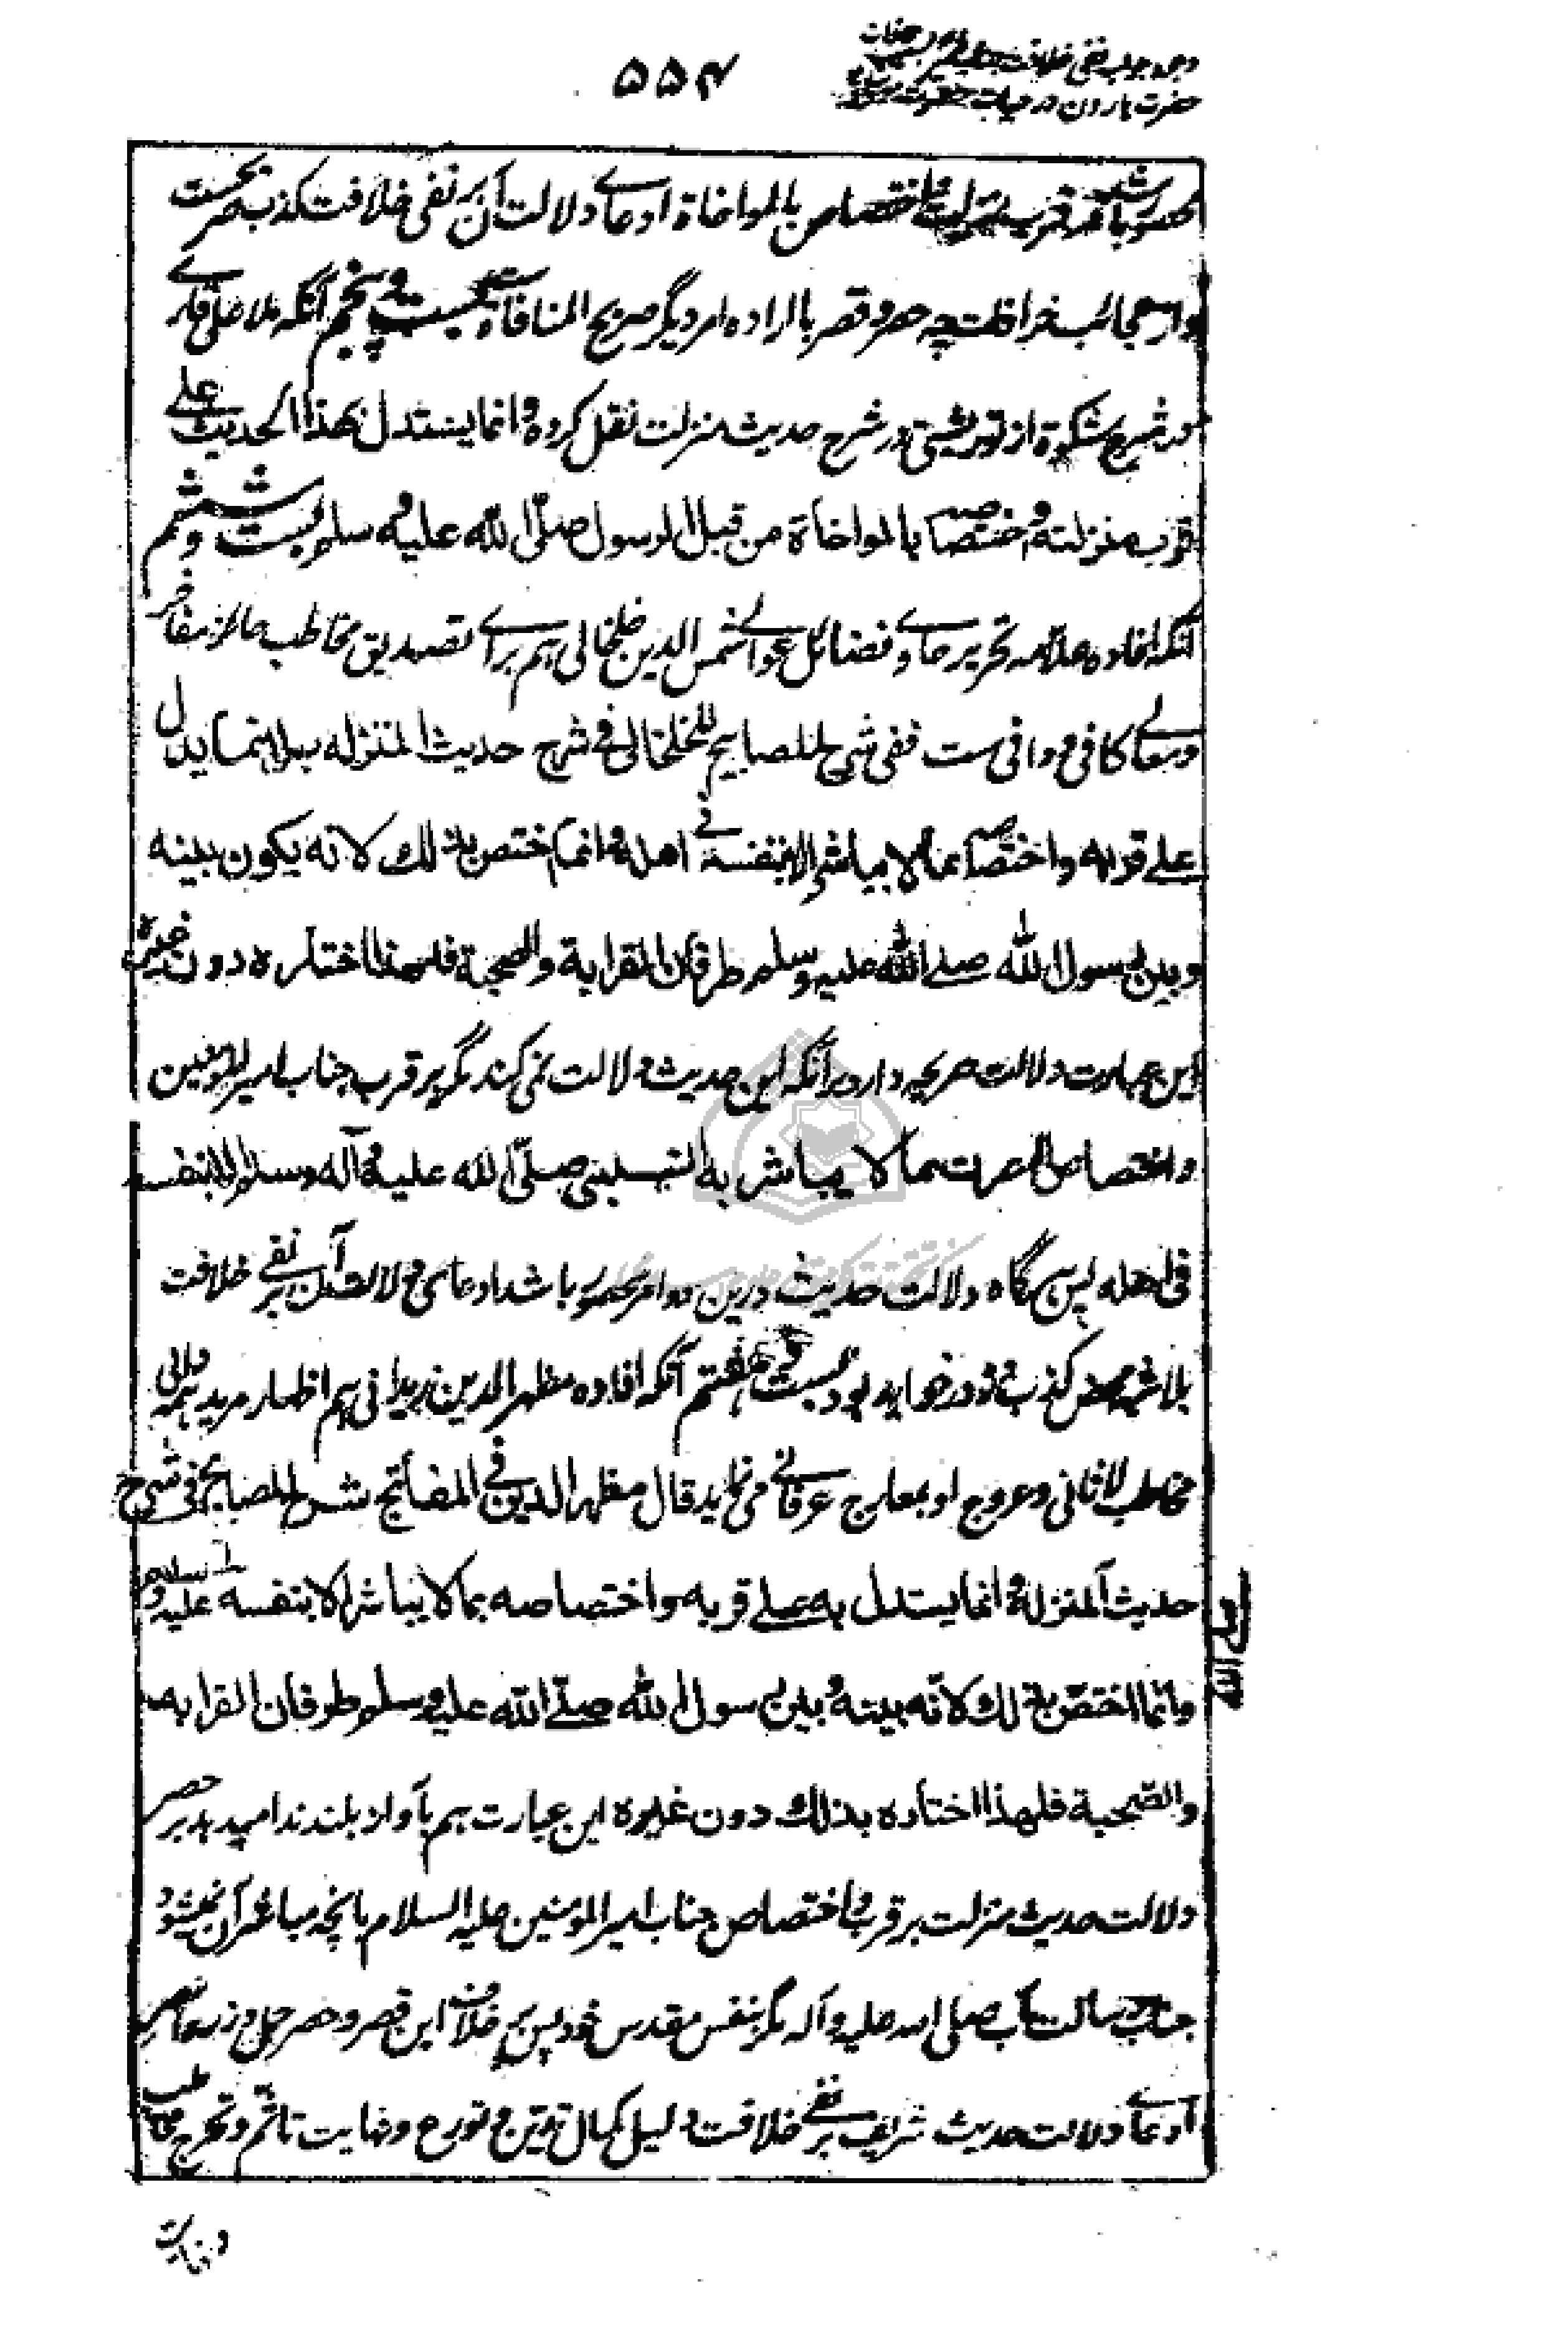 وجوه جواب نفی خلافت
۵۵۴
حضرت هارون در حیات حضرت موسی
محصور باشد در قرب منزلت و اختصاص بالمواخاة ادعای دلالت آن بر نفی خلافت کذب بحت ست
و از عجائب خرافات چه حصر و قصر با اراده امر دیگر صریح المنافاة ست بست و پنجم آنکه ملا علی قاری
در شرح مشکوة از توربشتی در شرح حدیث منزلت نقل کرده و انما یستدل بهذا الحدیث علی
قرب منزلته و اختصاصه بالمواخاة من قبل الرسول صلّی اللّه علیه و سلم بست و ششم
آنکه افاده علامه تحریر حاوی فضائل عوالی شمس الدین خلخالی هم برای تصدیق مخاطب حائز مفاخر
و معالی کافی و وافی ست ففی شرح المصابیح للخلخالی فی شرح حدیث المنزله بل انما یدل
علی قربه و اختصاصه بما لا یباشر الا بنفسه فی اهله و انما اختص بذلک لانه یکون بینه
و بین رسول اللّه صلی اللّه علیه و سلم طرفان القرابة و الصحبة فلهذا اختاره دون غیره
این عبارت دلالت صریحه دارد بر آنکه این حدیث دلالت نمی کند مگر بر قرب جناب امیر المومنین
و اختصاص آنحضرت بما لا یباشر به النبی صلّی اللّه علیه و آله و سلم الا بنفسه
فی اهله پس هرگاه دلالت حدیث درین دو امر محصور باشد ادعای دلالت آن بر نفی خلافت
بلا شبهه محض کذب و زور خواهد بود بست و هفتم آنکه افاده مظهر الدین زیدانی هم اظهار مزید همه دانی
مخاطب لا ثانی و عروج او بمعارج عرفانی می نماید قال مظهر الدین فی المفاتیح شرح المصابیح فی شرح
حدیث المنزله و انما یستدل به علی قربه و اختصاصه بما لا یباشر الا بنفسه صلی الله علیه و سلم
و انما اختصّ بذلک لانّه بینه و بین رسول اللّه صلّی اللّه علیه و سلم طرفان القرابه
و الصّحبة فلهذا اختاره بذلک دون غیره این عبارت هم بآواز بلند ندا میدهد بر حصر
دلالت حدیث منزلت بر قرب و اختصاص جناب امیر المومنین علیه السلام بانچه مباشر آن نمیشود
جناب رسالت مآب صلی الله علیه و آله مگر بنفس مقدس خود پس بر خلاف این قصر و حصر
ادعای دلالت حدیث شریف بر نفی خلافت دلیل کمال تدین و تورع و نهایت تاثم و تحرج مخاطب
و نهایت